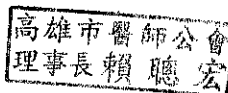 高雄市醫師公會
理事長賴聰宏